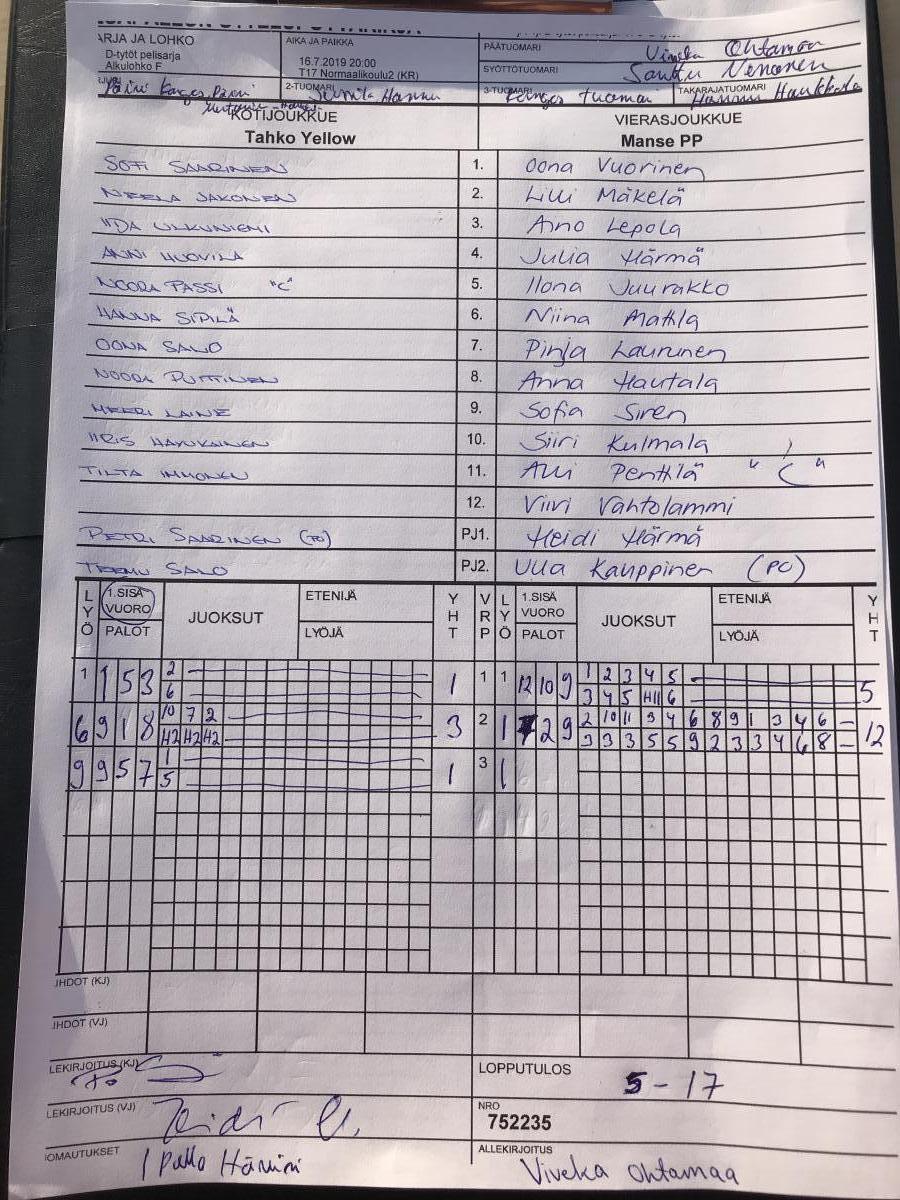 ARJA JA LOHKO
D-tytöt pelisarja
Alkulohko F
AIKA JA PAIKKA
16.7.2019 20:00
T17 Normaalikoulu2 (KR)
PÄÄTUOMARI Ohtamaa
SYÖTTÖTUOMARI
2-TUOMARI Hannu
3-TUOMARI tuomari
TAKARAJATUOMARI
KOTIJOUKKUE
Tahko Yellow
VIERASJOUKKUE
Manse PP
SOFI SAARINEN 1. Oona Vuorinen
NEELA JAKONEN 2. Lilli Mäkelä
IIDA ULKUNIEMI 3. Aino Lepola
ANNI HUOVILA 4. Julia Härmä
NOORA PASSI "C" 5. Ilona Juurakko
HANNA SIPILÄ 6. Niina Mattila
OONA SALO 7. Pinja Laurunen
NOORA PUTTINEN 8. Anna Hautala
MEERI LAINE 9. Sofia Siren
IIRIS HAVUKAINEN 10. Siiri Kulmala
TILTA IMMONEN 11. Alli Penttilä "C"
12. Viivi Vahtolammi
PETRI SAARINEN (PO) PJ1. Heidi Härmä
TEEMU SALO PJ2. Ulla Kauppinen (PO)
LYÖ 1.SISÄ VUORO PALOT JUOKSUT ETENIJÄ LYÖJÄ YHT VRP LYÖ 1.SISÄ VUORO PALOT JUOKSUT ETENIJÄ LYÖJÄ YHT
1 1 5 3 2 1 1 1 12 10 9 1 2 3 4 5 5
6 3 4 5 H11 6
6 9 1 8 10 7 2 3 2 1 2 9 2 10 11 3 4 6 8 9 1 3 4 6 - 12
H2 H2 H2 3 3 3 5 5 9 2 3 3 4 6 8 -
9 9 5 7 1 1 3 1
5
JHDOT (KJ)
JHDOT (VJ)
LEKIRJOITUS (KJ)
LOPPUTULOS 5 - 17
LEKIRJOITUS (VJ)
NRO
752235
OMAUTUKSET 1 Pallo Hävisi
ALLEKIRJOITUS Viveka Ohtamaa